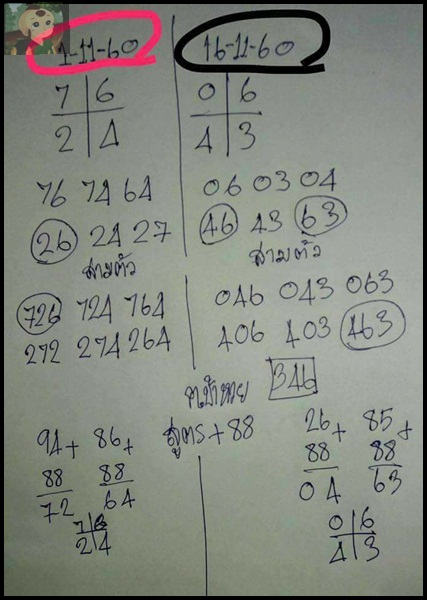 1-11-60 16-11-60
7 6 0 6
2 4 4 3
76 74 64 06 03 04
26 24 27 46 43 63
สามตัว สามตัว
726 724 764 046 043 063
272 274 264 406 403 463
เป้าหมาย 346
สูตร+88
94+ 86+ 26+ 85+
88 88 88 88
72 64 04 63
7 6 0 6
2 4 4 3